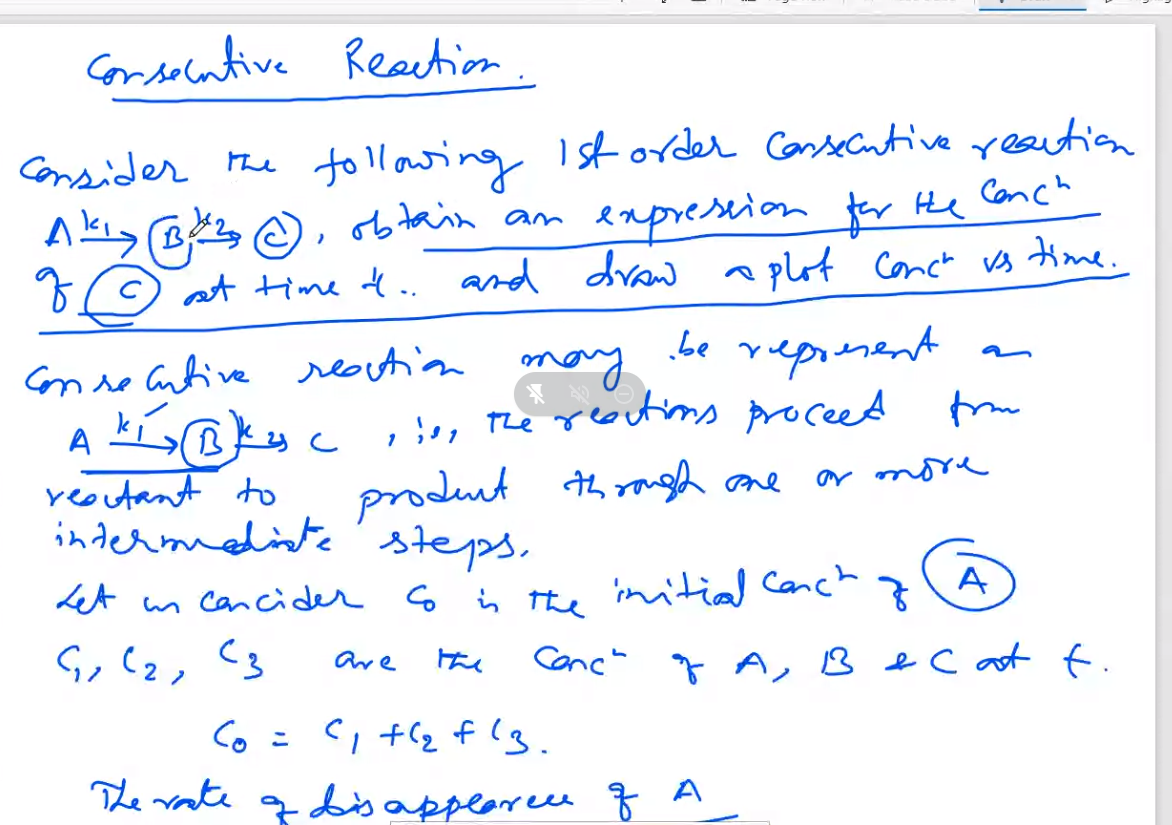 Consecutive Reaction.
Consider the following 1st order Consecutive reaction
A k1→ B k2→ C, obtain an expression for the Concⁿ
of C at time t.. and draw a plot Concⁿ vs time.
Consecutive reaction may be represent an
A k1→ B k2→ C, ie, The reactions proceed from
reactant to product through one or more
intermediate steps.
Let us concider C0 is the initial Concⁿ of A
C1, C2, C3 are the Concⁿ of A, B & C at t.
C0 = C1 + C2 + C3.
The rate of disappearence of A